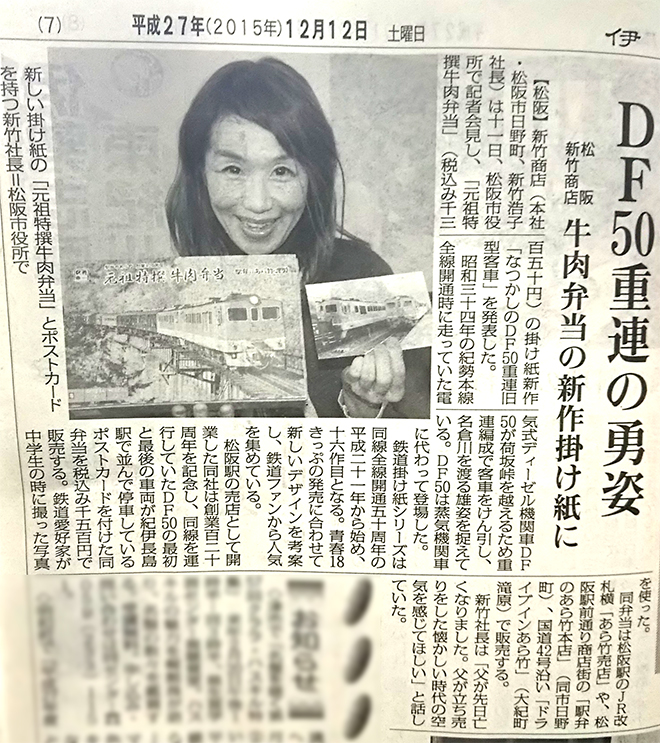 (7) 平成27年(2015年)12月12日 土曜日
伊
DF50重連の勇姿
松阪
新竹商店
牛肉弁当の新作掛け紙に
【松阪】新竹商店(本社
・松阪市日野町、新竹浩子
社長)は十一日、松阪市役
所で記者会見し、「元祖特
撰牛肉弁当」(税込み千三
百五十円)の掛け紙新作
「なつかしのDF50重連旧
型客車」を発表した。
昭和三十四年の紀勢本線
全線開通時に走っていた電
気式ディーゼル機関車DF
50が荷坂峠を越えるため重
連編成で客車をけん引し、
名倉川を渡る雄姿を捉えて
いる。DF50は蒸気機関車
に代わって登場した。
鉄道掛け紙シリーズは
同線全線開通五十周年の
平成二十一年から始め、
十六作目となる。青春18
きっぷの発売に合わせて
新しいデザインを考案
し、鉄道ファンから人気
を集めている。
松阪駅の売店として開
業した同社は創業百二十
周年を記念し、同線を運
行していたDF50の最初
と最後の車両が紀伊長島
駅で並んで停車している
ポストカードを付けた同
弁当を税込み千五百円で
販売する。鉄道愛好家が
中学生の時に撮った写真
を使った。
同弁当は松阪駅のJR改
札横「あら竹売店」や、松
阪駅前通り商店街の「駅弁
のあら竹本店」(同市日野
町)、国道42号沿い「ドラ
イブインあら竹」(大紀町
滝原)で販売する。
新竹社長は「父が先日亡
くなりました。父が立ち売
りをした懐かしい時代の空
気を感じてほしい」と話し
ていた。
元祖特撰 牛肉弁当
新しい掛け紙の「元祖特撰牛肉弁当」とポストカード
を持つ新竹社長＝松阪市役所で